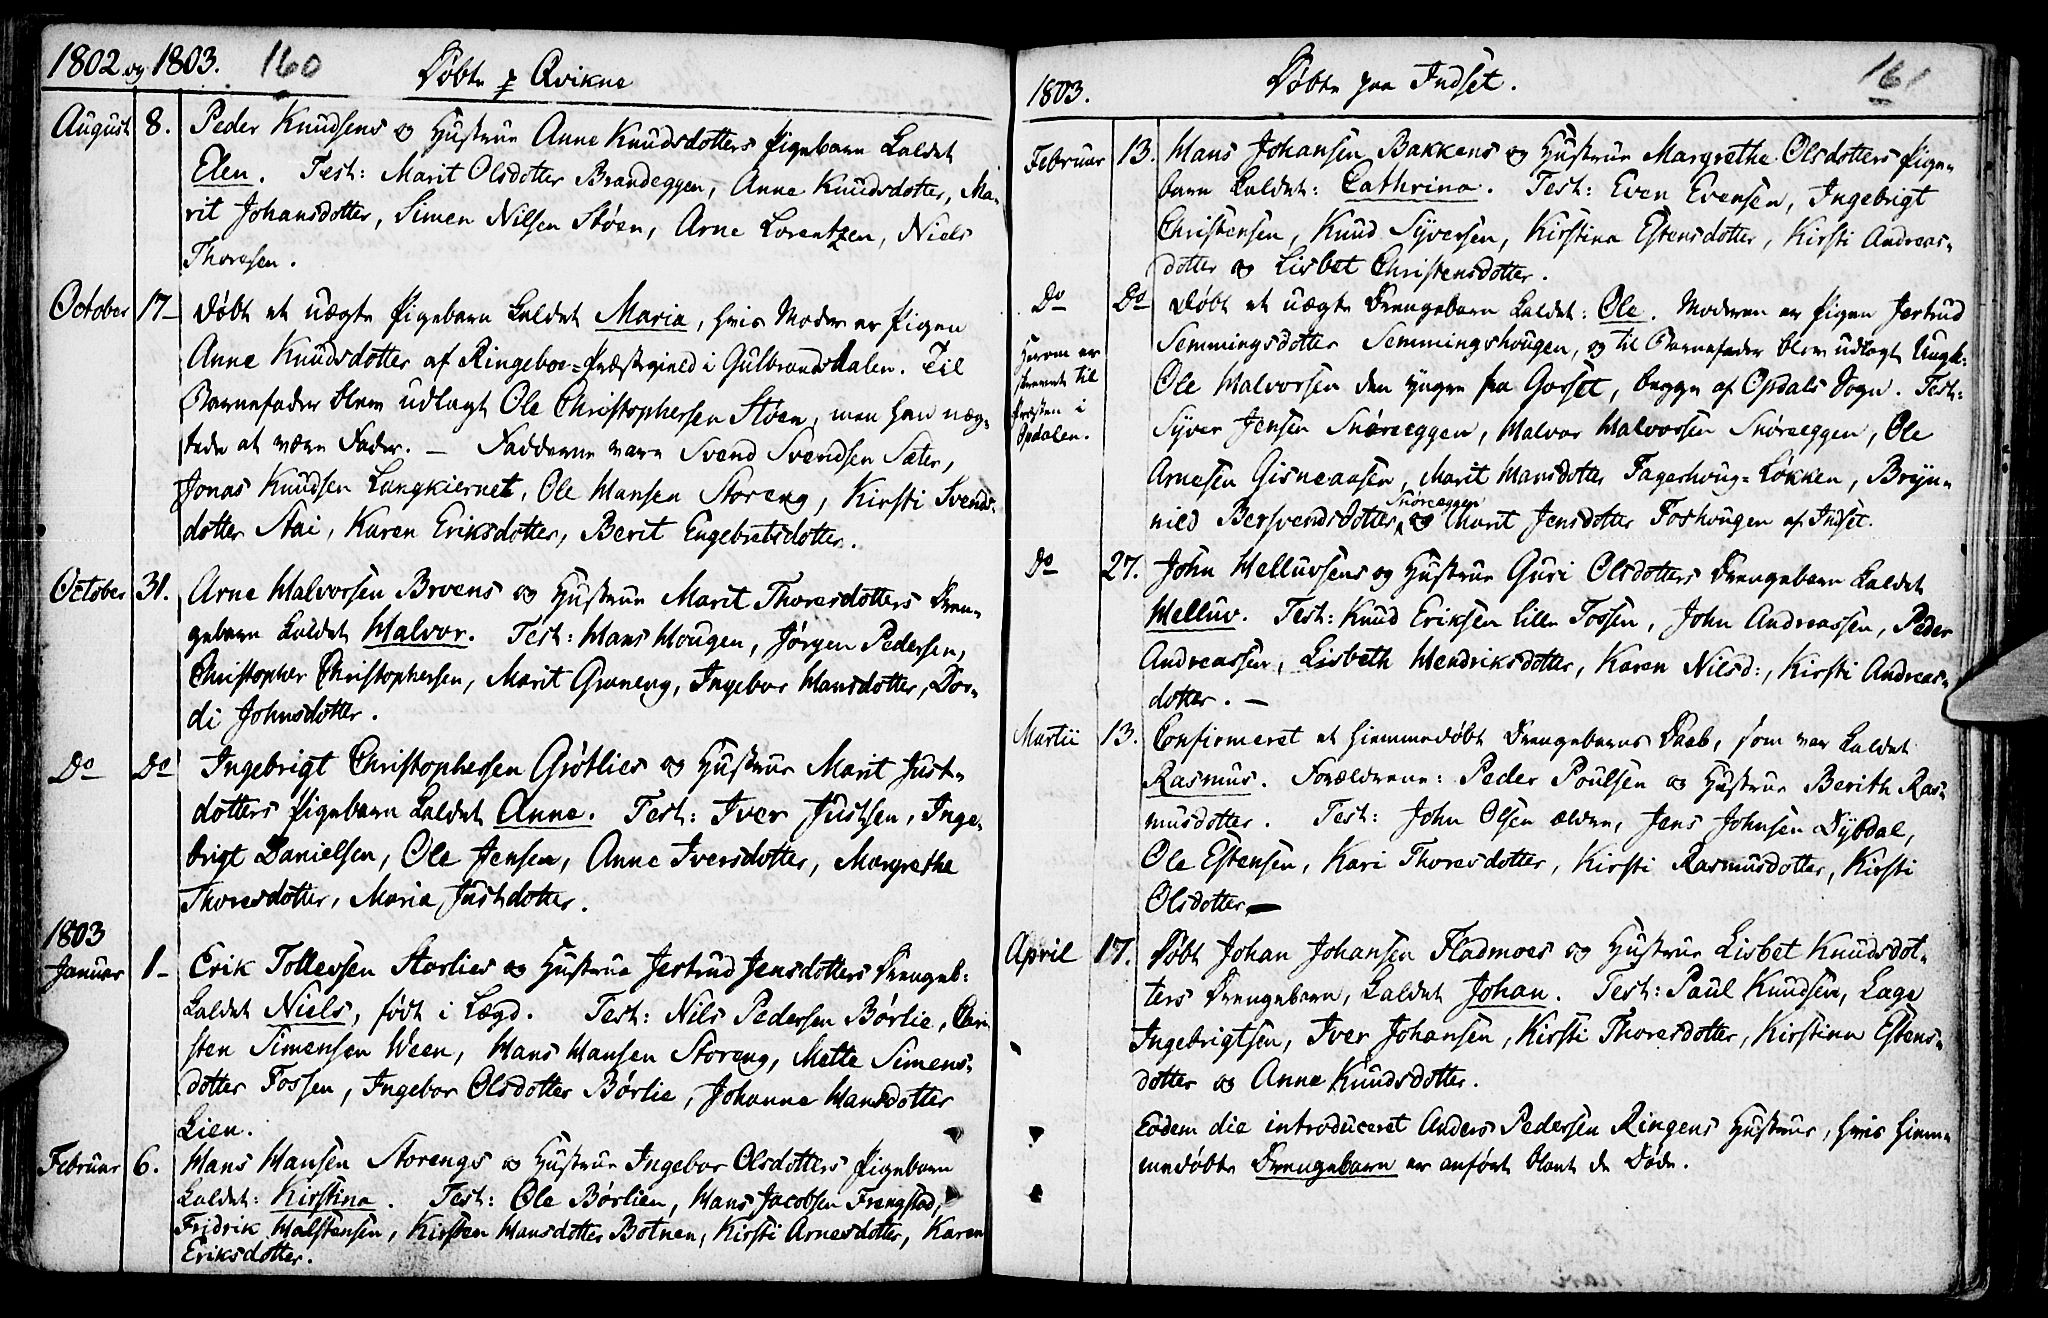 1802 og 1803. 160
Døbte p Qvikne
August 8. Peder Knudsens og Hustrue Anne Knudsdotters Pigebarn kaldet
Elen. Test: Marit Olsdotter Brandeggen, Anne Knudsdotter, Ma-
rit Johansdotter, Simen Nilsen Støen, Arne Lorentzen, Niels
Thoresen.
October 17 Døbt et uægte Pigebarn kaldet Maria, hvis Moder er Pigen
Anne Knudsdotter af Ringeboe=Præstegield i Gulbrandsdalen. Til
Barnefader blev udlagt Ole Christophersen Støen, men han næg-
tede at være Fader. — Fadderne vare Svend Svendsen Sæter,
Jonas Knudsen Langkiernet, Ole Hansen Storeng, Kirsti Svends-
dotter Stai, Karen Eriksdotter, Berit Engebretsdotter.
October 31. Arne Halvorsen Broens og Hustrue Marit Thoresdotters Dren-
gebarn kaldet Halvor. Test: Hans Hougen, Jørgen Pedersen,
Christopher Christophersen, Marit Graneng, Ingebor Hansdotter, Dor-
di Johnsdotter.
Do Do Ingebrigt Christophersen Grøtlies og Hustrue Marit Just-
dotters Pigebarn kaldet Anne. Test: Iver Justsen, Inge-
brigt Danielsen, Ole Jensen, Anne Iversdotter, Margrethe
Thoresdotter, Maria Justdotter.
1803
Januar 1 Erik Tollevsen Storlies og Hustrue Jertrud Jensdotters Drengeb:
kaldet Niels, født i Lægd. Test: Nils Pedersen Børlie, Chri-
sten Simensen Ween, Hans Hansen Storeng, Mette Simens-
dotter Fossen, Ingebor Olsdotter Børlie, Johanne Hansdotter
Lien.
Februar 6. Hans Hansen Storengs og Hustrue Ingebor Olsdotters Pigebarn
kaldet: Kirstina. Test: Ole Børlien, Hans Jacobsen Frengstad,
Fridrik Halstensen, Kirsten Hansdotter Botnen, Kirsti Arnesdotter, Karen
Eriksdotter.
1803. Døbte paa Indset. 161
Februar 13. Hans Johansen Bakkens og Hustrue Margrethe Olsdotters Pige-
barn kaldet: Cathrina. Test: Even Evensen, Ingebrigt
Christensen, Knud Syversen, Kirstina Estensdotter, Kirsti Andreas-
dotter og Lisbet Christensdotter.
Do Do Døbt et uægte Drengebarn kaldet: Ole. Moderen er Pigen Jertrud
Semmingsdotter Semmingshougen, og til Barnefader blev udlagt Ungk:
Ole Halvorsen den yngre fra Gorset, begge af Opdals Sogn. Test:
Syver Jensen Snøreeggen, Halvor Halvorsen Snøreeggen, Ole
Arnesen Gisneaasen, Marit Hansdotter Fagerhoug=Løkken, Bryn-
nild Bersvendsdotter Snøreeggen og Marit Jensdotter Foshougen af Indset.
Herom er
skrevet til
Præsten i
Opdalen.
Do 27. John Helluvsens og Hustrue Guri Olsdotters Drengebarn kaldet
Helluv. Test: Knud Eriksen lille Fossen, John Andreassen, Peder
Andreassen, Lisbeth Hendriksdotter, Karen Nilsd:, Kirsti Andreas-
dotter. —
Martii 13. Confirmeret et hiemmedøbt Drengebarns Daab, som var kaldet
Rasmus. Forældrene: Peder Poulsen og Hustrue Berith Ras-
musdotter. Test: John Olsen ældre, Jens Johnsen Dybdal,
Ole Estensen, Kari Thoresdotter, Kirsti Rasmusdotter, Kirsti
Olsdotter —
April 17. Døbt Johan Johansen Fladmoes og Hustrue Lisbet Knudsdot-
ters Drengebarn, kaldet Johan. Test: Paul Knudsen, Lage
Ingebrigtsen, Iver Johansen, Kirsti Thoresdotter, Kirstina Estens-
dotter og Anne Knudsdotter.
Eodem die introduceret Anders Pedersen Ringens Hustrue, hvis hiem-
medøbte Drengebarn er anført blant de Døde.